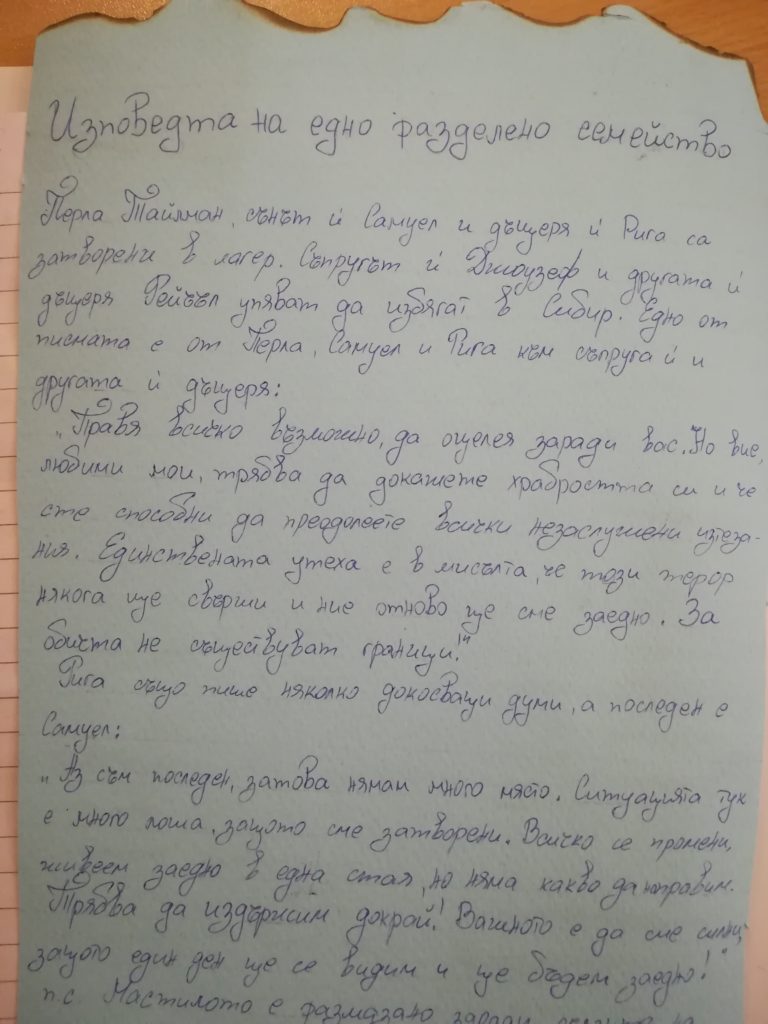 Изповедта на едно разделено семейство
Перла Тайлман, сънът ѝ Самуел и дъщеря ѝ Рига са
затворени в лагер. Съпругът ѝ Джоузеф и другата ѝ
дъщеря Рейчъл успяват да избягат в Сибир. Едно от
писмата е от Перла, Самуел и Рига към съпруга ѝ и
другата ѝ дъщеря:
„Правя всичко възможно, да оцелея заради вас. Но вие,
любими мои, трябва да докажете храбростта си и че
сте способни да преодолеете всички незаслужени изтеза-
ния. Единствената утеха е в мисълта, че този терор
някога ще свърши и ние отново ще сме заедно. За
обичта не съществуват граници!“
Рига също пише няколко докосващи думи, а последен е
Самуел:
„Аз съм последен, затова нямам много място. Ситуацията тук
е много лоша, защото сме затворени. Всичко се промени,
живеем заедно в една стая, но няма какво да направим.
Трябва да издържим докрай! Важното е да сме силни,
защото един ден ще се видим и ще бъдем заедно!“
п.с. Мастилото е размазано заради